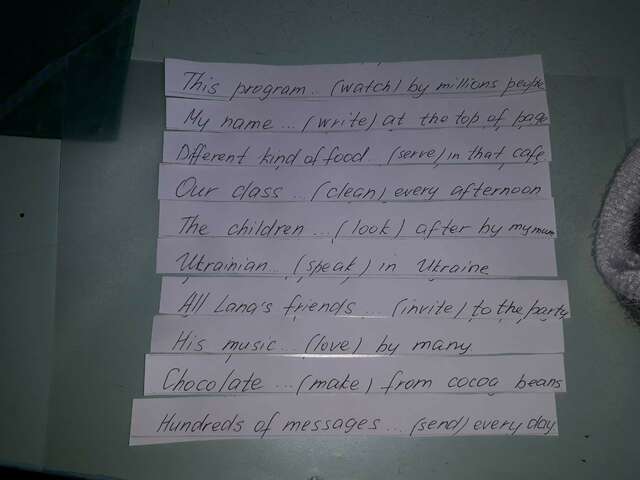 This program... (watch) by millions people
My name... (write) at the top of page
Dfferent kind of food... (serve) in that cafe
Our class... (clean) every afternoon
The children... (look) after by my mum
Ukrainian... (speak) in Ukraine
All Lana's friends... (invite) to the party
His music... (love) by many
Chocolate... (make) from cocoa beans
Hundreds of messages... (send) every day